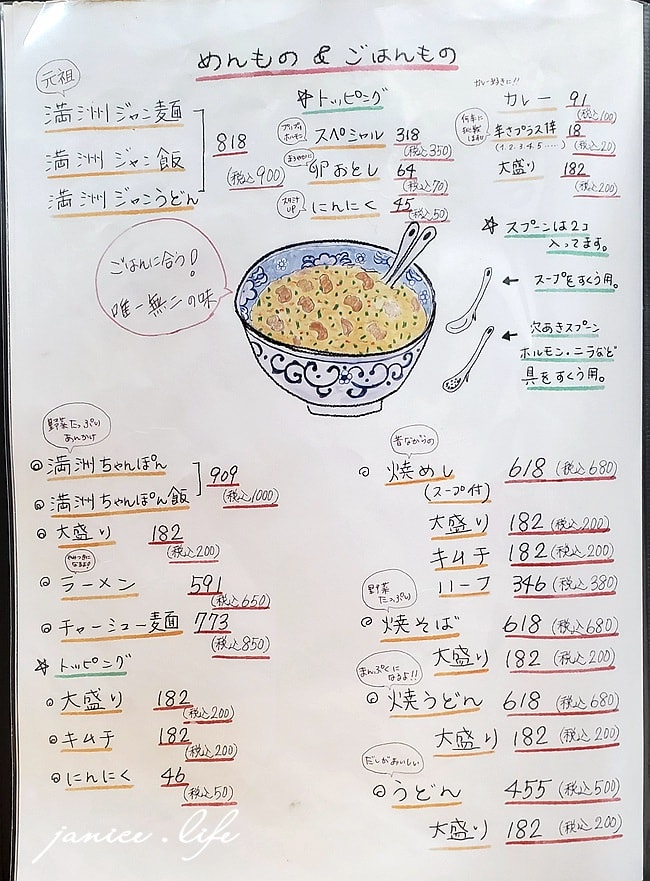 めんもの & ごはんもの
元祖
満洲ジャン麺
満洲ジャン飯
満洲ジャンうどん
818
(税込900)
☆トッピング
プリプリホルモン
スペシャル 318
(税込350)
まろやかに
卵おとし 64
(税込70)
スタミナUP
にんにく 45
(税込50)
カレー好きに!!
カレー 91
(税込100)
何辛に
挑戦
辛さプラス1辛 18
(1.2.3.4.5……) (税込20)
大盛り 182
(税込200)
☆スプーンは2コ
入ってます。
← スープをすくう用。
← 穴あきスプーン
ホルモン・ニラなど
具をすくう用。
ごはんに合う!
唯一無二の味
野菜たっぷり
あんかけ
満洲ちゃんぽん
満洲ちゃんぽん飯
909
(税込1000)
大盛り 182
(税込200)
ラーメン 591
(税込650)
チャーシュー麺 773
(税込850)
☆トッピング
大盛り 182
(税込200)
キムチ 182
(税込200)
にんにく 46
(税込50)
昔ながらの
焼めし 618 (税込680)
(スープ付)
大盛り 182 (税込200)
キムチ 182 (税込200)
ハーフ 346 (税込380)
野菜
たっぷり
焼そば 618 (税込680)
大盛り 182 (税込200)
まんぷくに
なるよ!!
焼うどん 618 (税込680)
大盛り 182 (税込200)
だしがおいしい
うどん 455 (税込500)
大盛り 182 (税込200)
janice.life